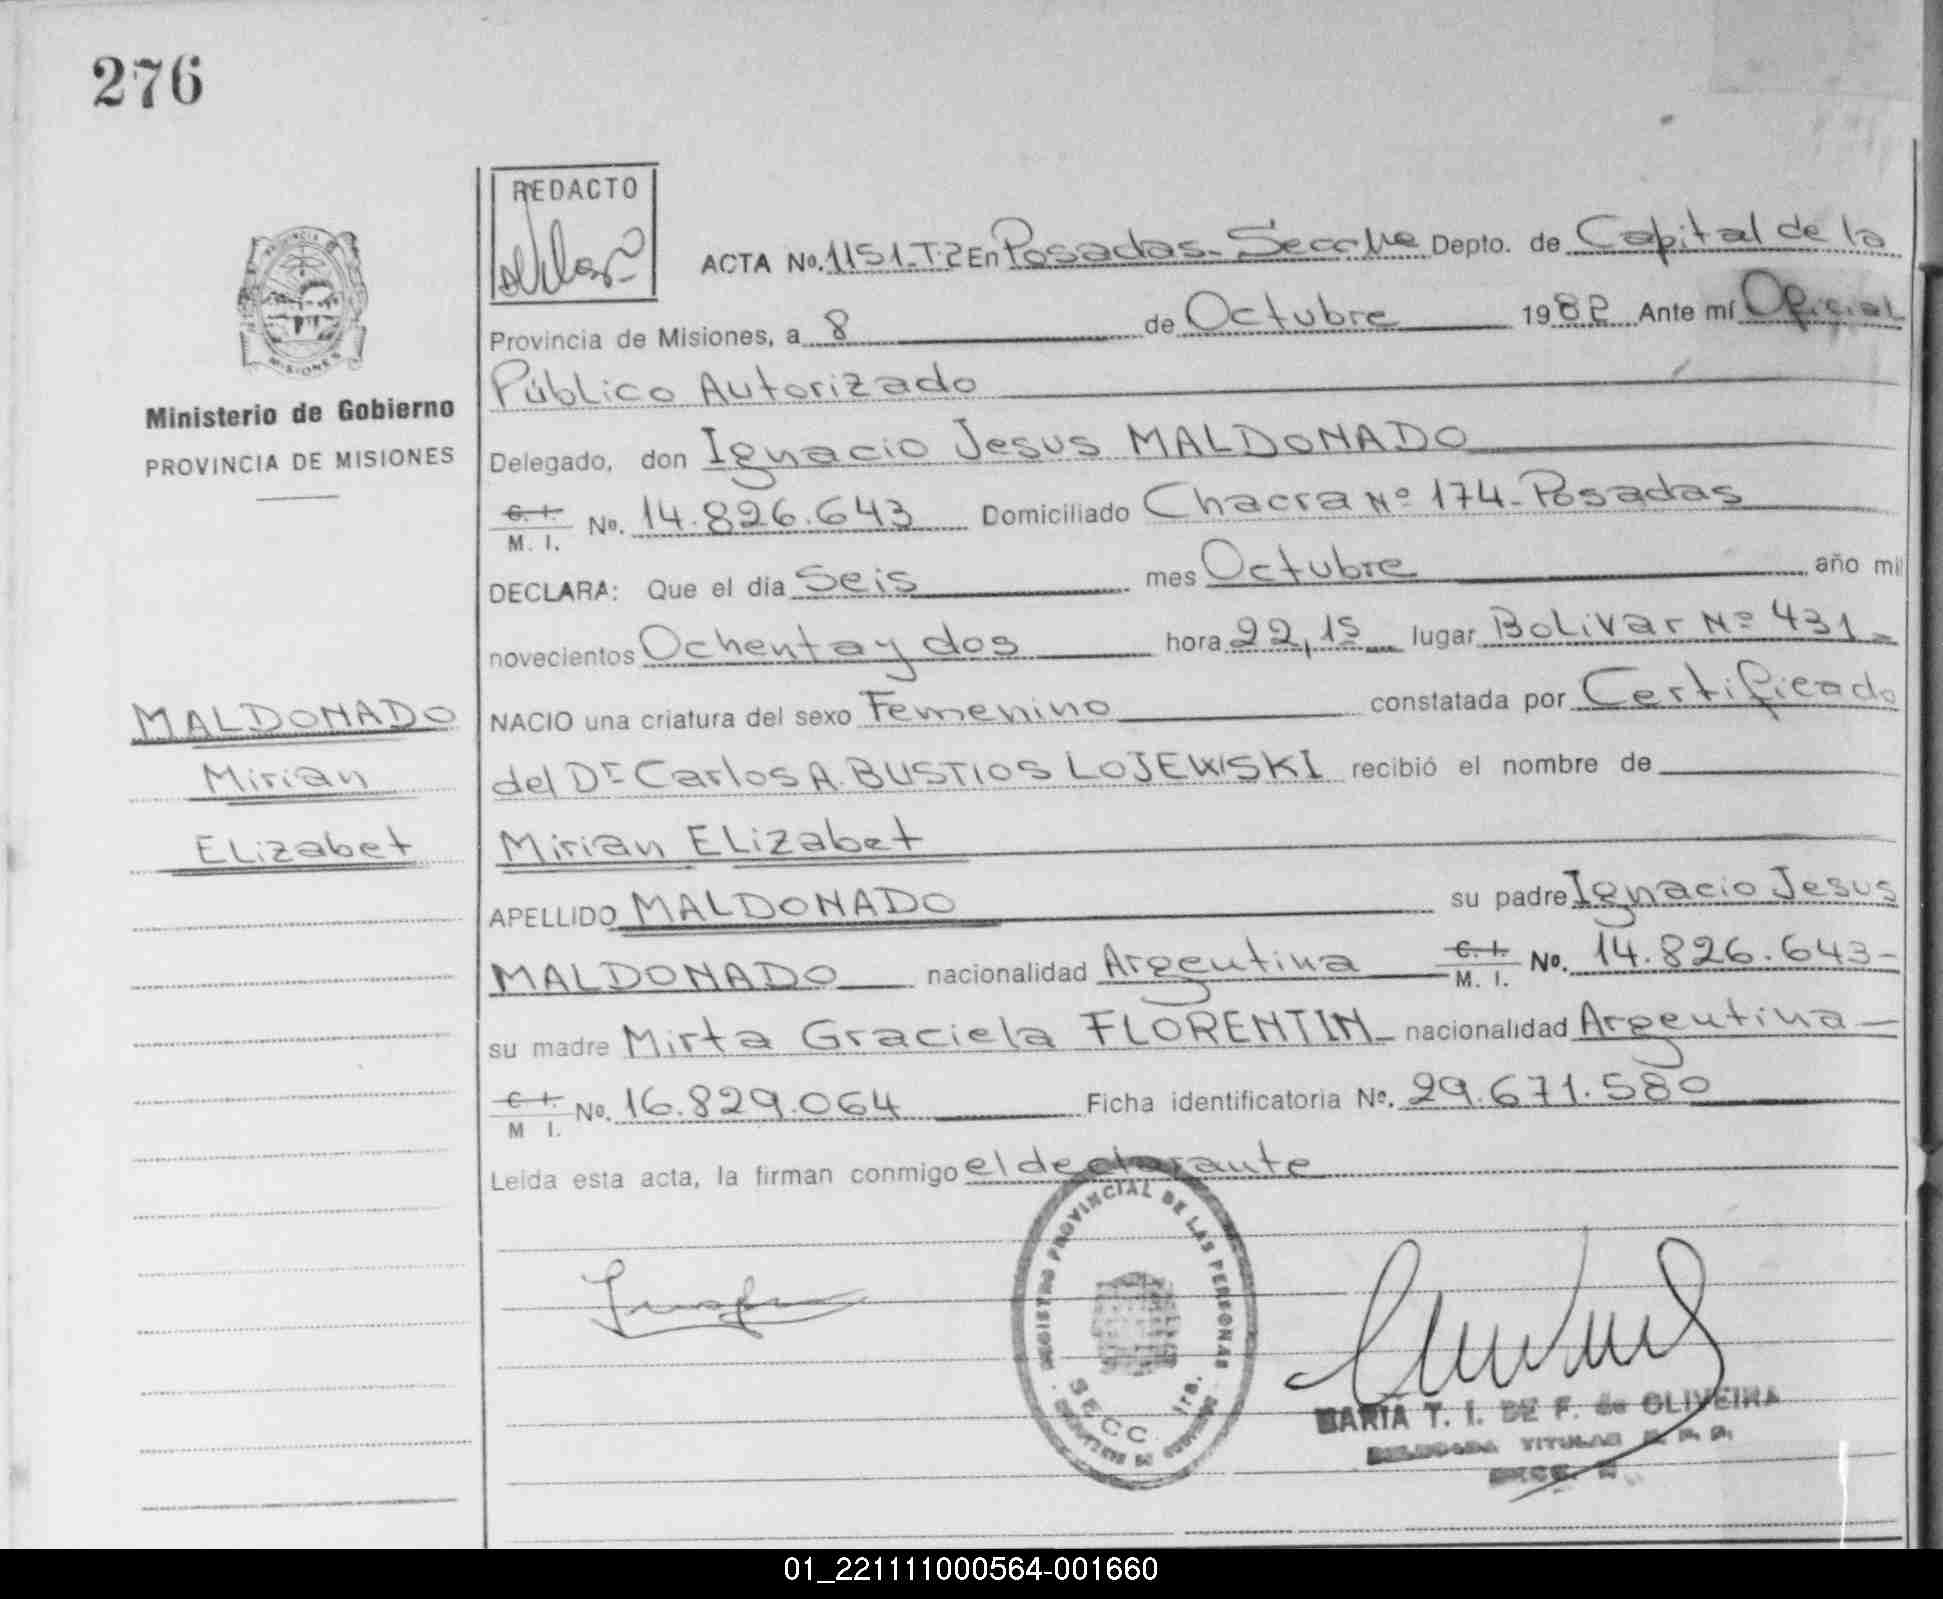 276
REDACTO
ACTA No. 1151-T2 En Posadas- Secc 1ra Depto. de Capital de la
Provincia de Misiones, a 8 de Octubre 1982 Ante mí Oficial
Público Autorizado
Delegado, don Ignacio Jesus MALDONADO
C. I. / M. I. No. 14.826.643 Domiciliado Chacra Nº 174- Posadas
DECLARA: Que el día Seis mes Octubre año mil
novecientos Ochenta y dos hora 22,15 lugar Bolivar Nº 431-
NACIO una criatura del sexo Femenino constatada por Certificado
del Dr Carlos A. BUSTIOS LOJEWSKI recibió el nombre de
Mirian Elizabet
APELLIDO MALDONADO su padre Ignacio Jesus
MALDONADO nacionalidad Argentina C. I. / M. I. No. 14.826.643-
su madre Mirta Graciela FLORENTIN- nacionalidad Argentina-
C. I. / M. I. No. 16.829.064 Ficha identificatoria No. 29.671.580
Leida esta acta, la firman conmigo el declarante
PROVINCIA DE MISIONES
Ministerio de Gobierno
PROVINCIA DE MISIONES
MALDONADO
Mirian
Elizabet
REGISTRO PROVINCIAL DE LAS PERSONAS
SECC. 1ra.
MARIA T. I. DE F. de OLIVEIRA
DELEGADA TITULAR R. P. P.
01_221111000564-001660